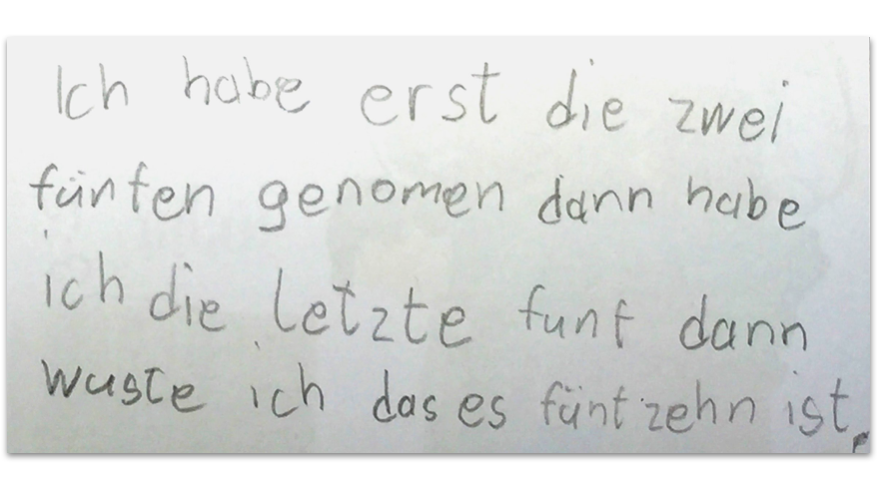 Ich habe erst die zwei
fünfen genomen dann habe
ich die letzte funf dann
wuste ich das es fünfzehn ist.